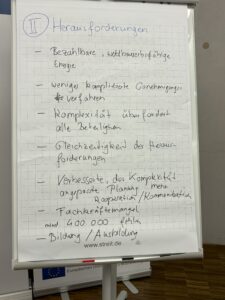 II Herausforderungen
- Bezahlbare, wettbewerbsfähige
Energie
- weniger komplizierte Genehmigungs-
verfahren
- Komplexität überfordert
alle Beteiligten
- Gleichzeitigkeit der Heraus-
forderungen
- Verbesserte, der Komplexität
angepasste Planung mehr
Kooperation / Kommunikation
- Fachkräftemangel
mind. 400.000 fehlen
- Bildung / Ausbildung
www.streit.de